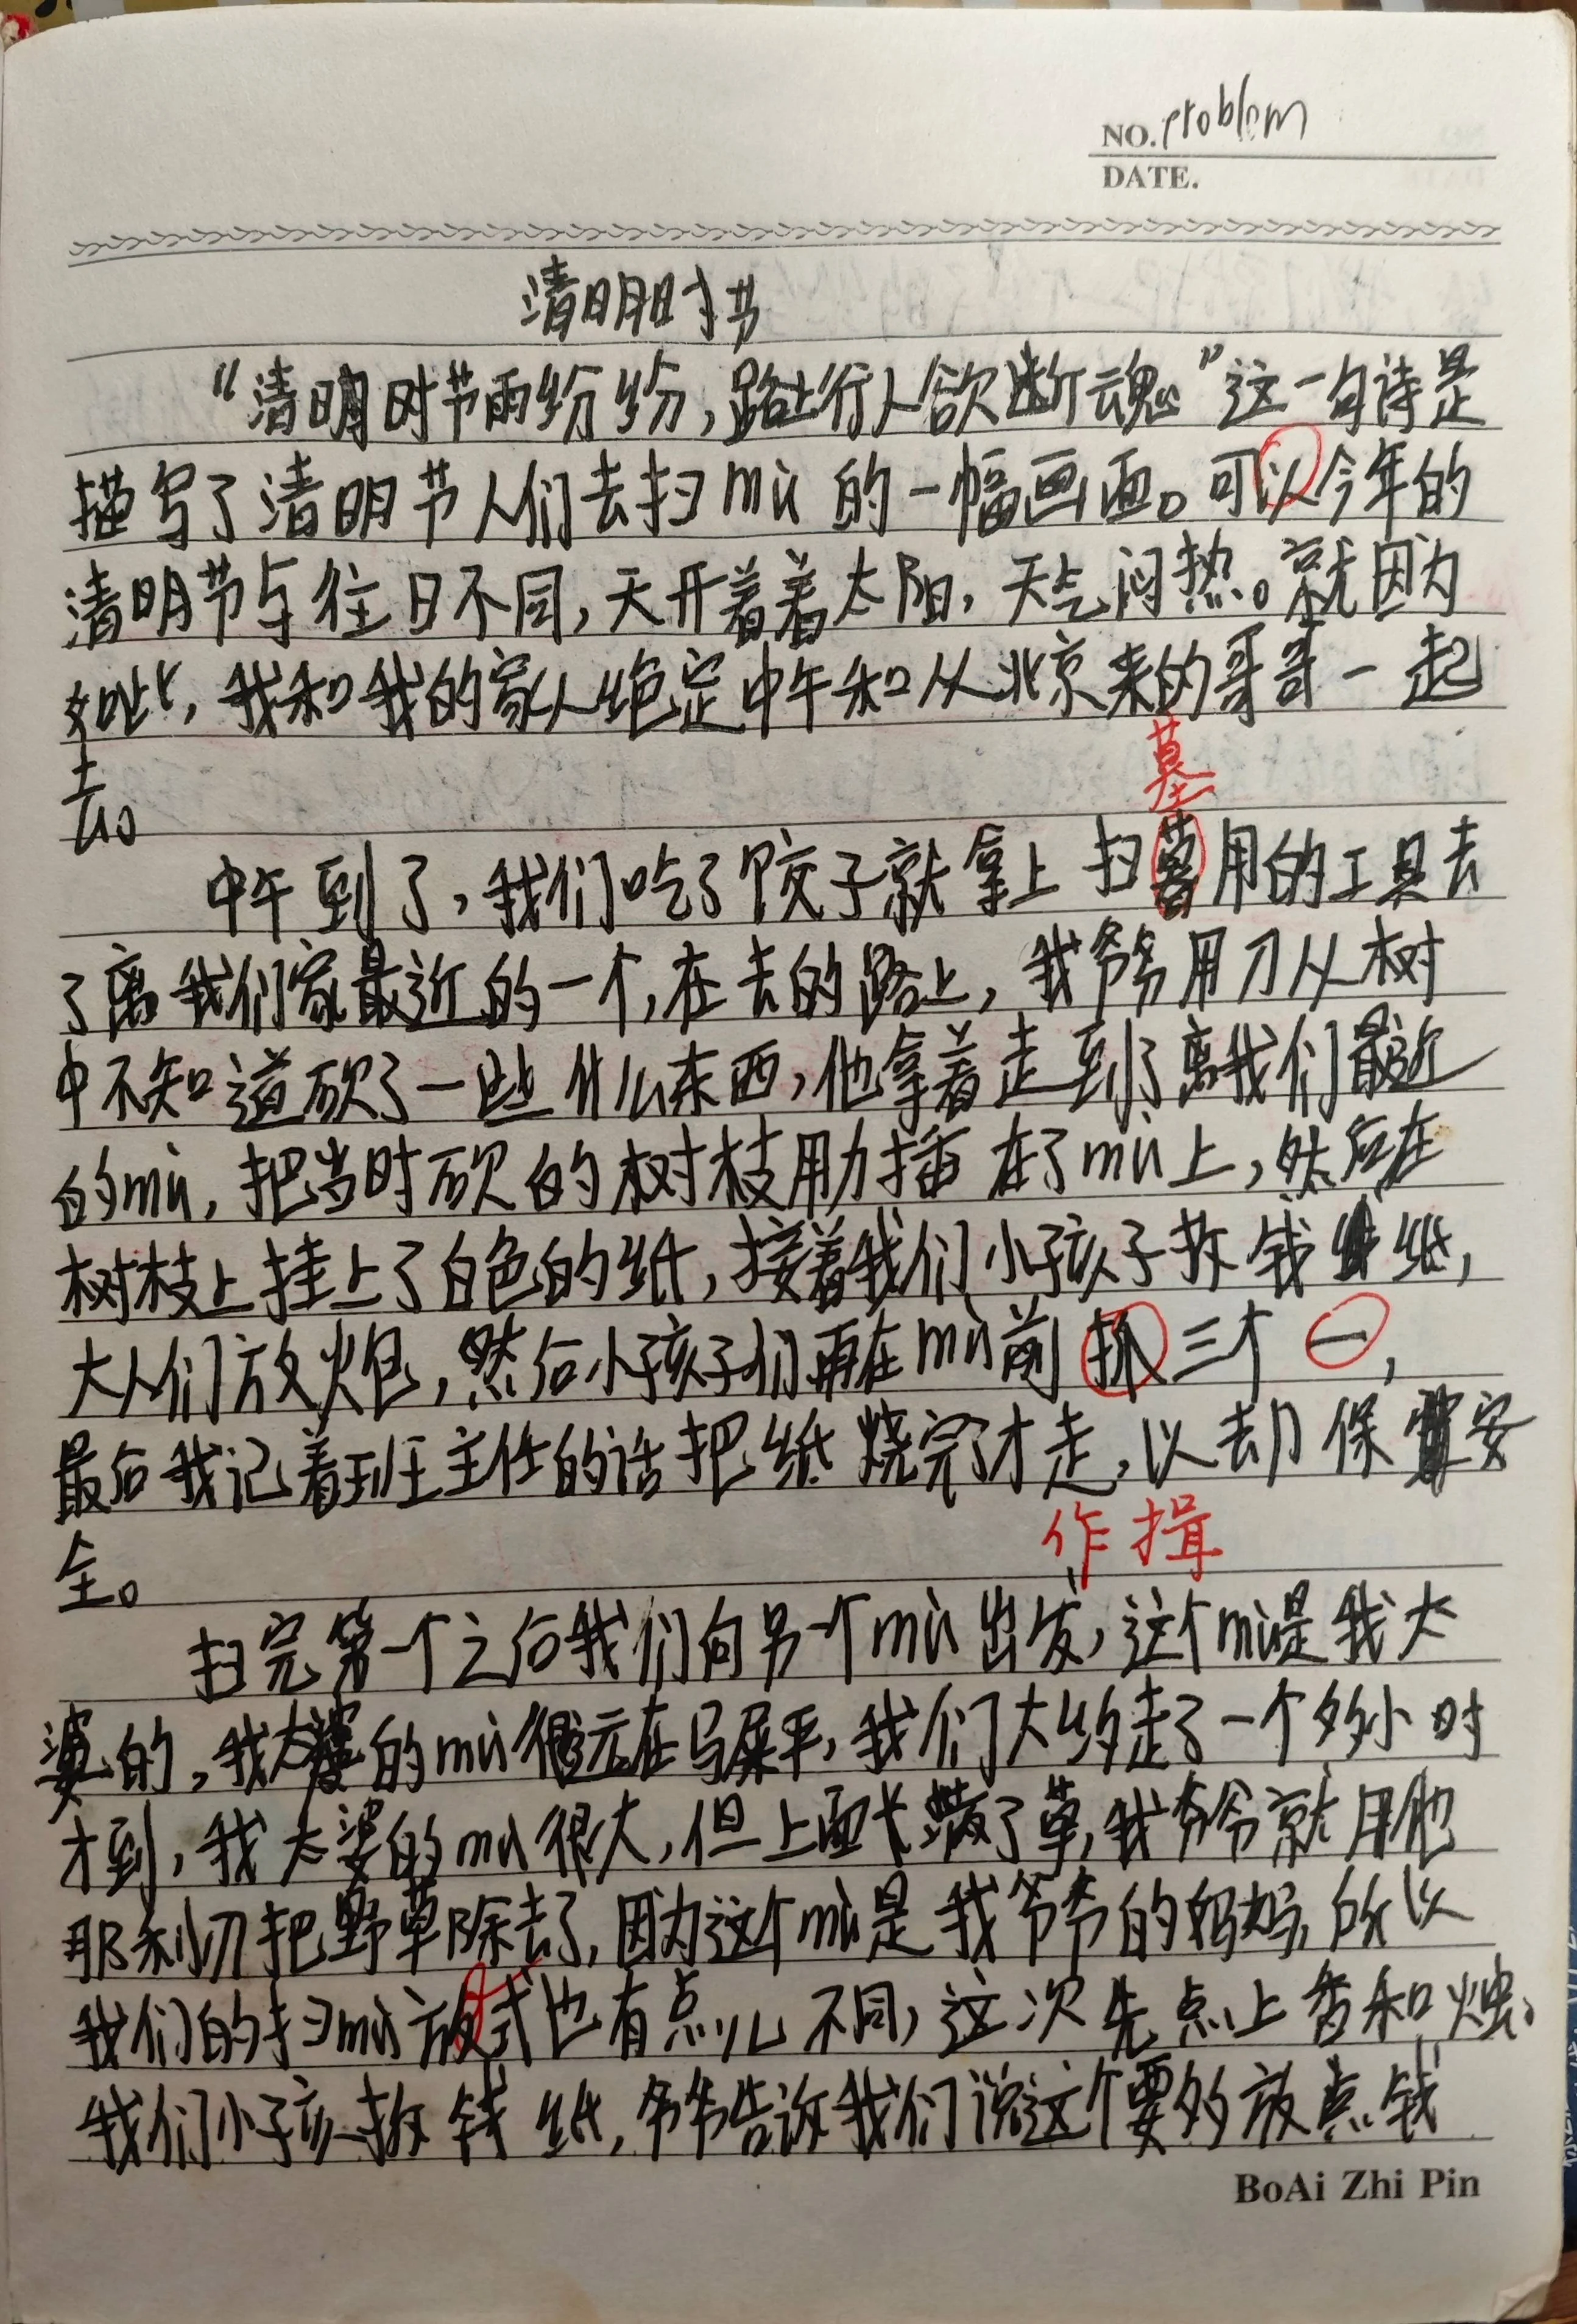 NO. problem
DATE.
清明时节
“清明时节雨纷纷,路上行人欲断魂。”这一句诗是
描写了清明节人们去扫mù的一幅画面。可以今年的
清明节与往日不同,天开着着太阳,天气闷热。就因为
如此,我和我的家人绝定中午和从北京来的哥哥一起
去。
墓
中午到了,我们吃了饺子就拿上扫用的工具去
了离我们家最近的一个,在去的路上,我爷爷用刀从树
中不知道砍了一些什么东西,他拿着走到了离我们最近
的mù,把当时砍的树枝用力插在了mù上,然后在
树枝上挂上了白色的纸,接着我们小孩子拆钱纸,
大人们放火炮,然后小孩子们再在mù前抓三个一,
最后我记着班主任的话把纸烧完了才走,以去保安
全。
作揖
扫完第一个之后我们向另一个mù出发,这个mù是我太
婆的,我太婆的mù很远在马屎平,我们大约走了一个多小时
才到,我太婆的mù很大,但上面长满了草,我爷爷就用他
那利刀把野草除去了,因为这个mù是我爷爷的妈妈,所以
我们的扫mù放式也有点儿不同,这次先点上香和烛、
我们小孩拆钱纸,爷爷告诉我们说这个要多放点钱
BoAi Zhi Pin